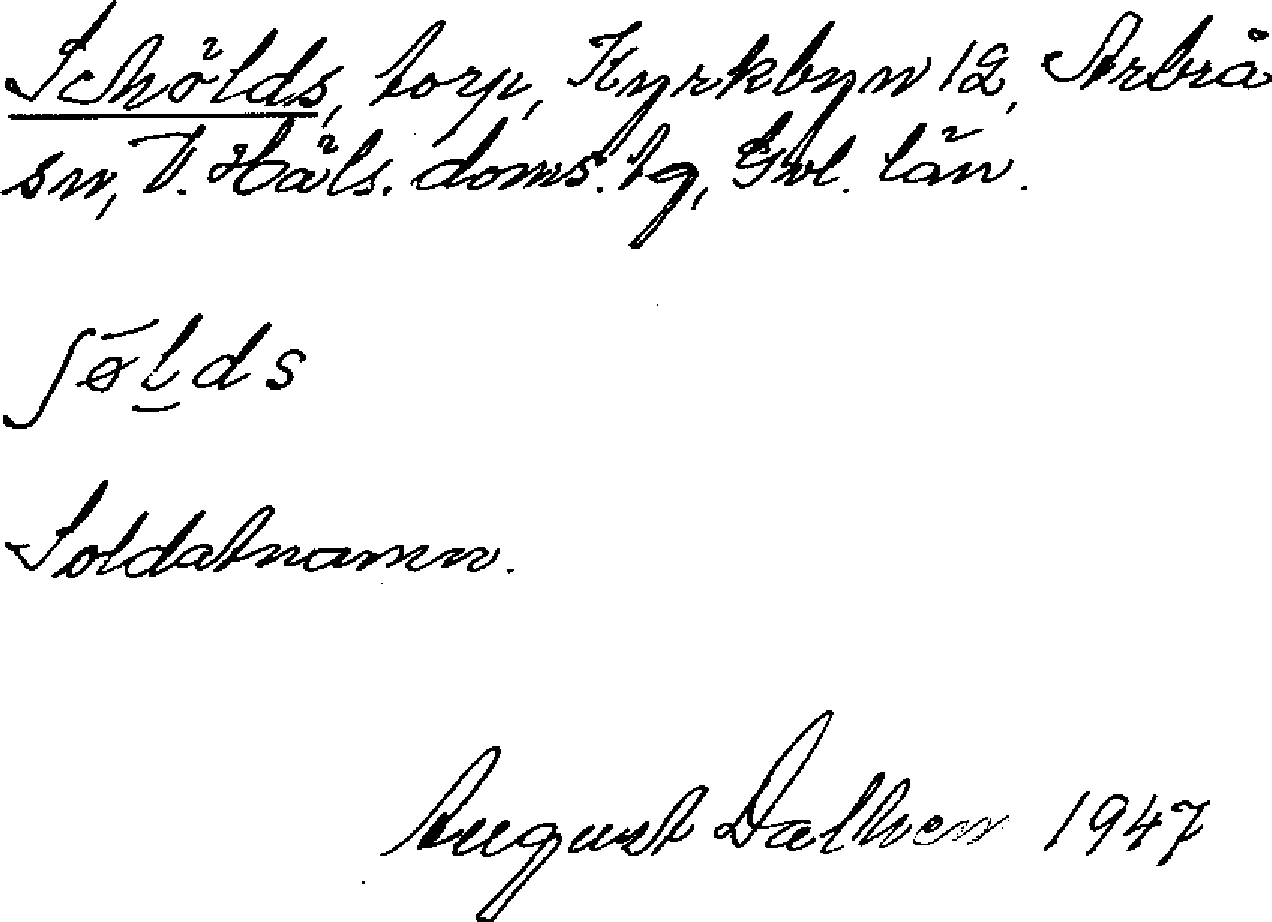 Schölds, torp, Kyrkbyn 12, Arbrå
sn, V. Häls. doms. tg, Gvl. län.
ʃø̄l̲ds
Soldatnamn.
August Dalhem 1947